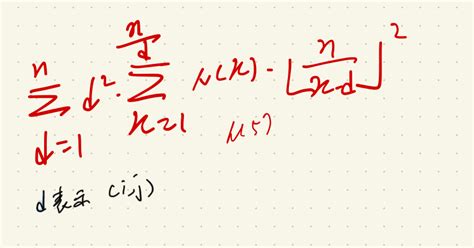 \sum_{d=1}^{n} d^2 \cdot \sum_{x=1}^{\frac{n}{d}} \mu(x) \cdot \left\lfloor \frac{n}{x \cdot d} \right\rfloor^2
d表示 (i,j)